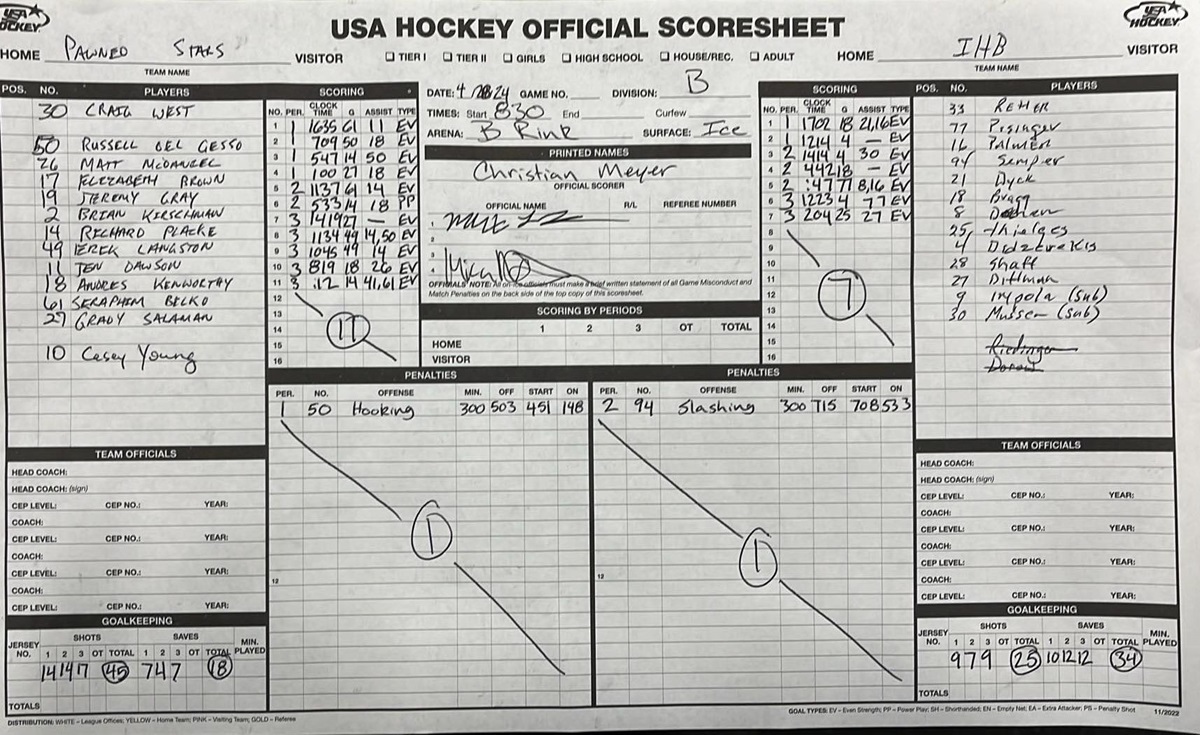 USA HOCKEY
USA HOCKEY OFFICIAL SCORESHEET
USA HOCKEY
HOME PAWNED STARS VISITOR
TEAM NAME
☐ TIER I ☐ TIER II ☐ GIRLS ☐ HIGH SCHOOL ☐ HOUSE/REC. ☐ ADULT
HOME IHB VISITOR
TEAM NAME
POS. NO. PLAYERS
30 CRAIG WEST
50 RUSSELL DEL GESSO
26 MATT MCDANIEL
17 ELIZABETH BROWN
19 JEREMY GRAY
2 BRIAN KERSCHMAN
14 RICHARD PLACKE
49 DEREK LANGSTON
11 JEN DAWSON
18 ANDRES KENWORTHY
61 SERAPHEM BECKO
27 GRADY SALAMAN
10 Casey Young
SCORING
NO. PER. CLOCK TIME G ASSIST TYPE
1 1 1635 61 11 EV
2 1 709 50 18 EV
3 1 547 14 50 EV
4 1 100 27 18 EV
5 2 1137 61 14 EV
6 2 533 14 18 PP
7 3 1419 27 — EV
8 3 1134 49 14,50 EV
9 3 1045 49 14 EV
10 3 819 18 26 EV
11 3 :12 14 41,61 EV
12
13
14 11
15
16
DATE: 4/28/24 GAME NO. DIVISION: B
TIMES: Start 830 End Curfew
ARENA: B Rink SURFACE: Ice
PRINTED NAMES
Christian Meyer
OFFICIAL SCORER
OFFICIAL NAME R/L REFEREE NUMBER
1
2
3
4
OFFICIALS' NOTE: All on-ice officials must make a brief written statement of all Game Misconduct and
Match Penalties on the back side of the top copy of this scoresheet.
SCORING BY PERIODS
1 2 3 OT TOTAL
HOME
VISITOR
SCORING
NO. PER. CLOCK TIME G ASSIST TYPE
1 1 1702 18 21,16 EV
2 1 1214 4 — EV
3 2 1414 4 30 EV
4 2 442 18 — EV
5 2 :47 77 8,16 EV
6 3 1223 4 77 EV
7 3 204 25 27 EV
8
9
10
11
12 7
13
14
15
16
POS. NO. PLAYERS
33
77 Pisinger
16 PALMER
94 Semper
21 Dyck
18 Bragg
8
25 Thielges
4
28 Shaff
27 Dittman
9 (sub)
30 Musser (sub)
PENALTIES
PER. NO. OFFENSE MIN. OFF START ON
1 50 Hooking 300 503 451 148
1
12
PENALTIES
PER. NO. OFFENSE MIN. OFF START ON
2 94 Slashing 300 715 708 533
1
12
TEAM OFFICIALS
HEAD COACH:
HEAD COACH: (sign)
CEP LEVEL: CEP NO.: YEAR:
COACH:
CEP LEVEL: CEP NO.: YEAR:
COACH:
CEP LEVEL: CEP NO.: YEAR:
COACH:
CEP LEVEL: CEP NO.: YEAR:
GOALKEEPING
JERSEY NO. SHOTS 1 2 3 OT TOTAL SAVES 1 2 3 OT TOTAL MIN. PLAYED
14 14 17 45 7 4 7 18
TOTALS
TEAM OFFICIALS
HEAD COACH:
HEAD COACH: (sign)
CEP LEVEL: CEP NO.: YEAR:
COACH:
CEP LEVEL: CEP NO.: YEAR:
COACH:
CEP LEVEL: CEP NO.: YEAR:
COACH:
CEP LEVEL: CEP NO.: YEAR:
GOALKEEPING
JERSEY NO. SHOTS 1 2 3 OT TOTAL SAVES 1 2 3 OT TOTAL MIN. PLAYED
9 7 9 25 10 12 12 34
TOTALS
DISTRIBUTION: WHITE – League Offices; YELLOW – Home Team; PINK – Visiting Team; GOLD – Referee
GOAL TYPES: EV – Even Strength; PP – Power Play; SH – Shorthanded; EN – Empty Net; EA – Extra Attacker; PS – Penalty Shot 11/2022